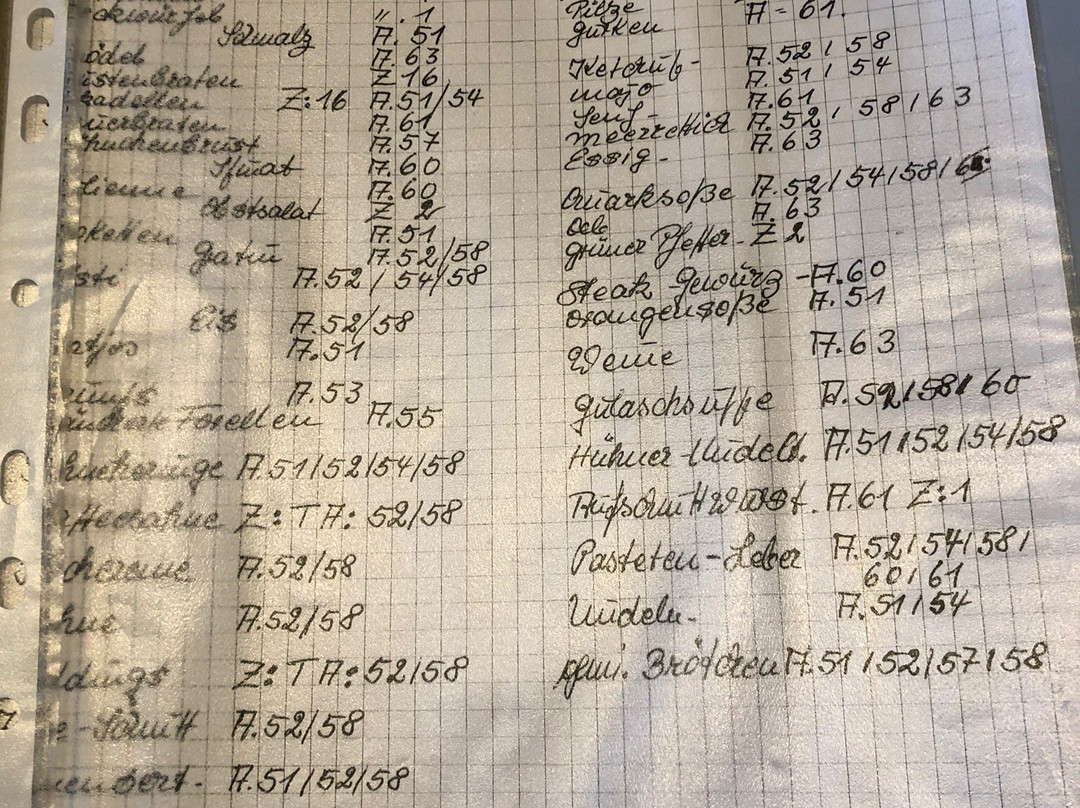 ″. 1
Schmalz A. 51
ödel A. 63
istenbraten Z 16
adellen Z:16 A. 51/54
uerbraten A. 61
huhenbrust A. 57
A. 60
lienne A. 60
Obstsalat Z 2
oketten A. 51
gatin A. 52/58
sti A. 52 / 54/58
Eis A. 52/58
atjes A. 51
A. 53
Forellen A. 55
A. 51/52/54/58
ffeesahne Z: T A: 52/58
chcreme A. 52/58
hne A. 52/58
ddings Z: T A: 52/58
e-Schnitt A. 52/58
A. 51/52/58
Pilze A - 61.
gurken
Ketchup- A. 52 / 58
majo A. 51 / 54
Senf- A. 61
meerrettich A. 52 / 58 / 63
Essig- A. 63
Quarksoße A. 52/54/58/
Oele A. 63
grüner Pfeffer- Z 2
Steak gewürz - A. 60
orangensoße A. 51
Weine A. 63
gulaschsuppe A. 52/58/ 60
Hühner-Nudelt. A. 51/52/54/58
Aufschnittwurst. A. 61 Z:1
Pasteten-Leber A. 52/54/58/
60/61
Nudeln- A. 51/54
gem. Brötchen A. 51/52/57/58